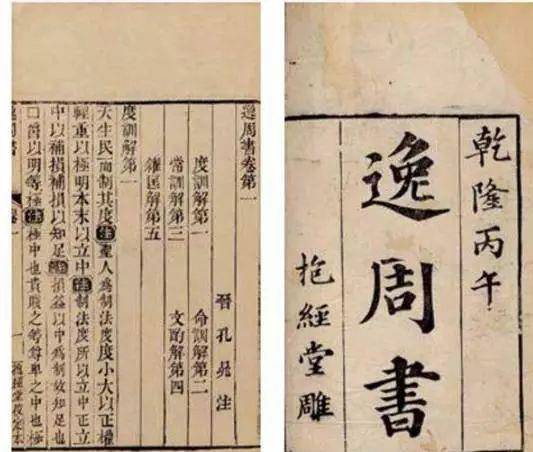 乾隆丙午
逸周書
抱經堂雕
逸周書卷第一
晉孔晁注
度訓解第一 命訓解第二
常訓解第三 文酌解第四
糴匡解第五
度訓解第一
天生民而制其度注聖人爲制法度度小大以正權
輕重以極明本末以立中注制法度所以立中正立
中以補損補損以知足注損益以中爲制故知足也
□爵以明等極注極中也貴賤之等尊卑之中也極
逸周書 卷一 一 抱經堂校定本